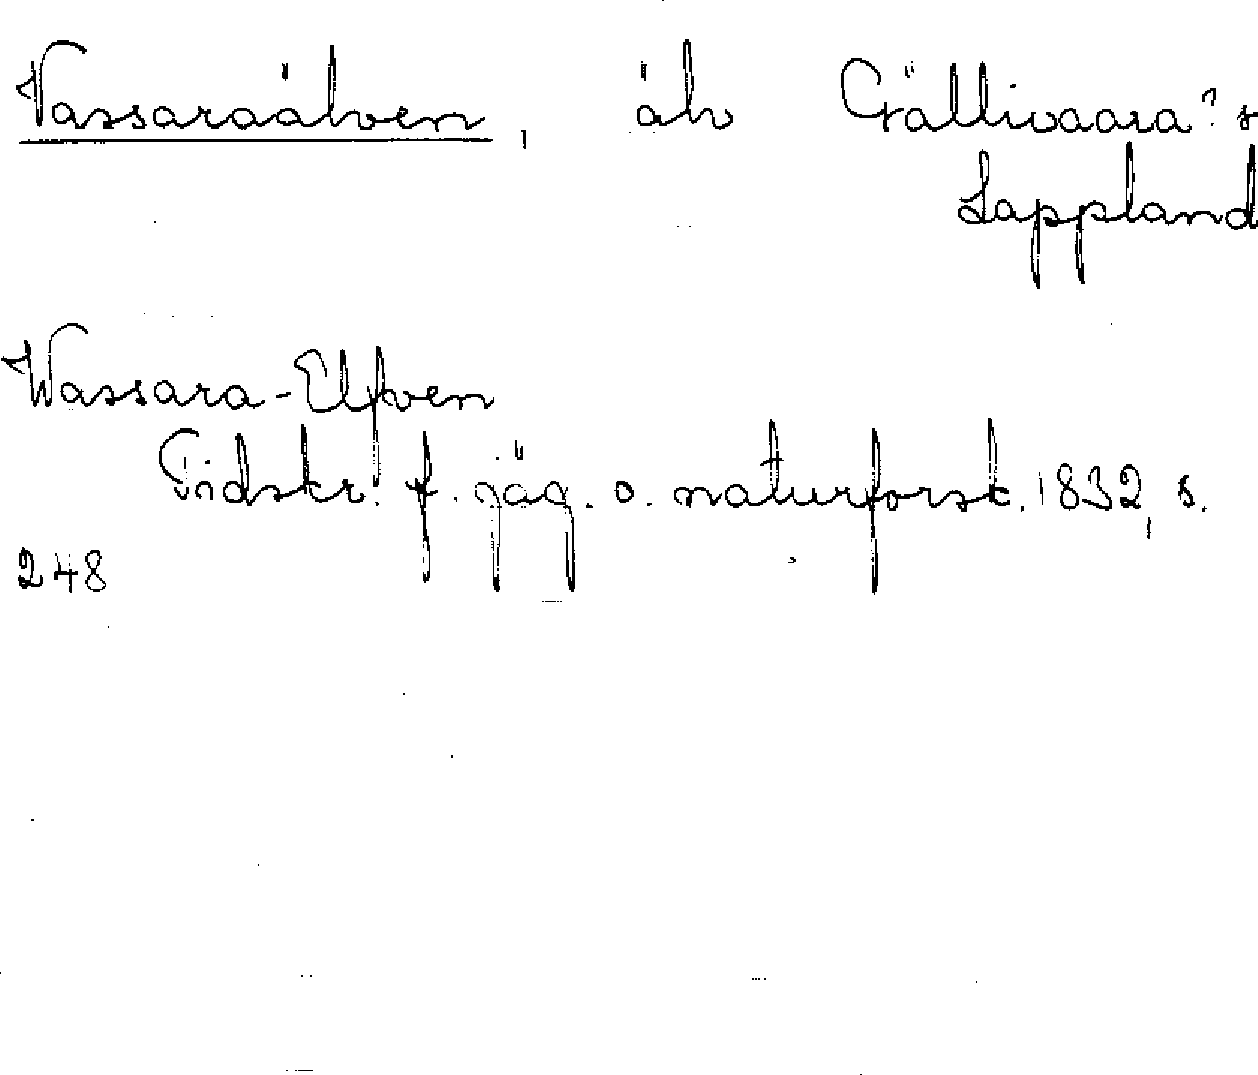 Vassaraälven, älv Gällivaara? s
Lappland
Wassara-Elfven
Tidskr. f. jäg. o. naturforsk. 1832, s.
248